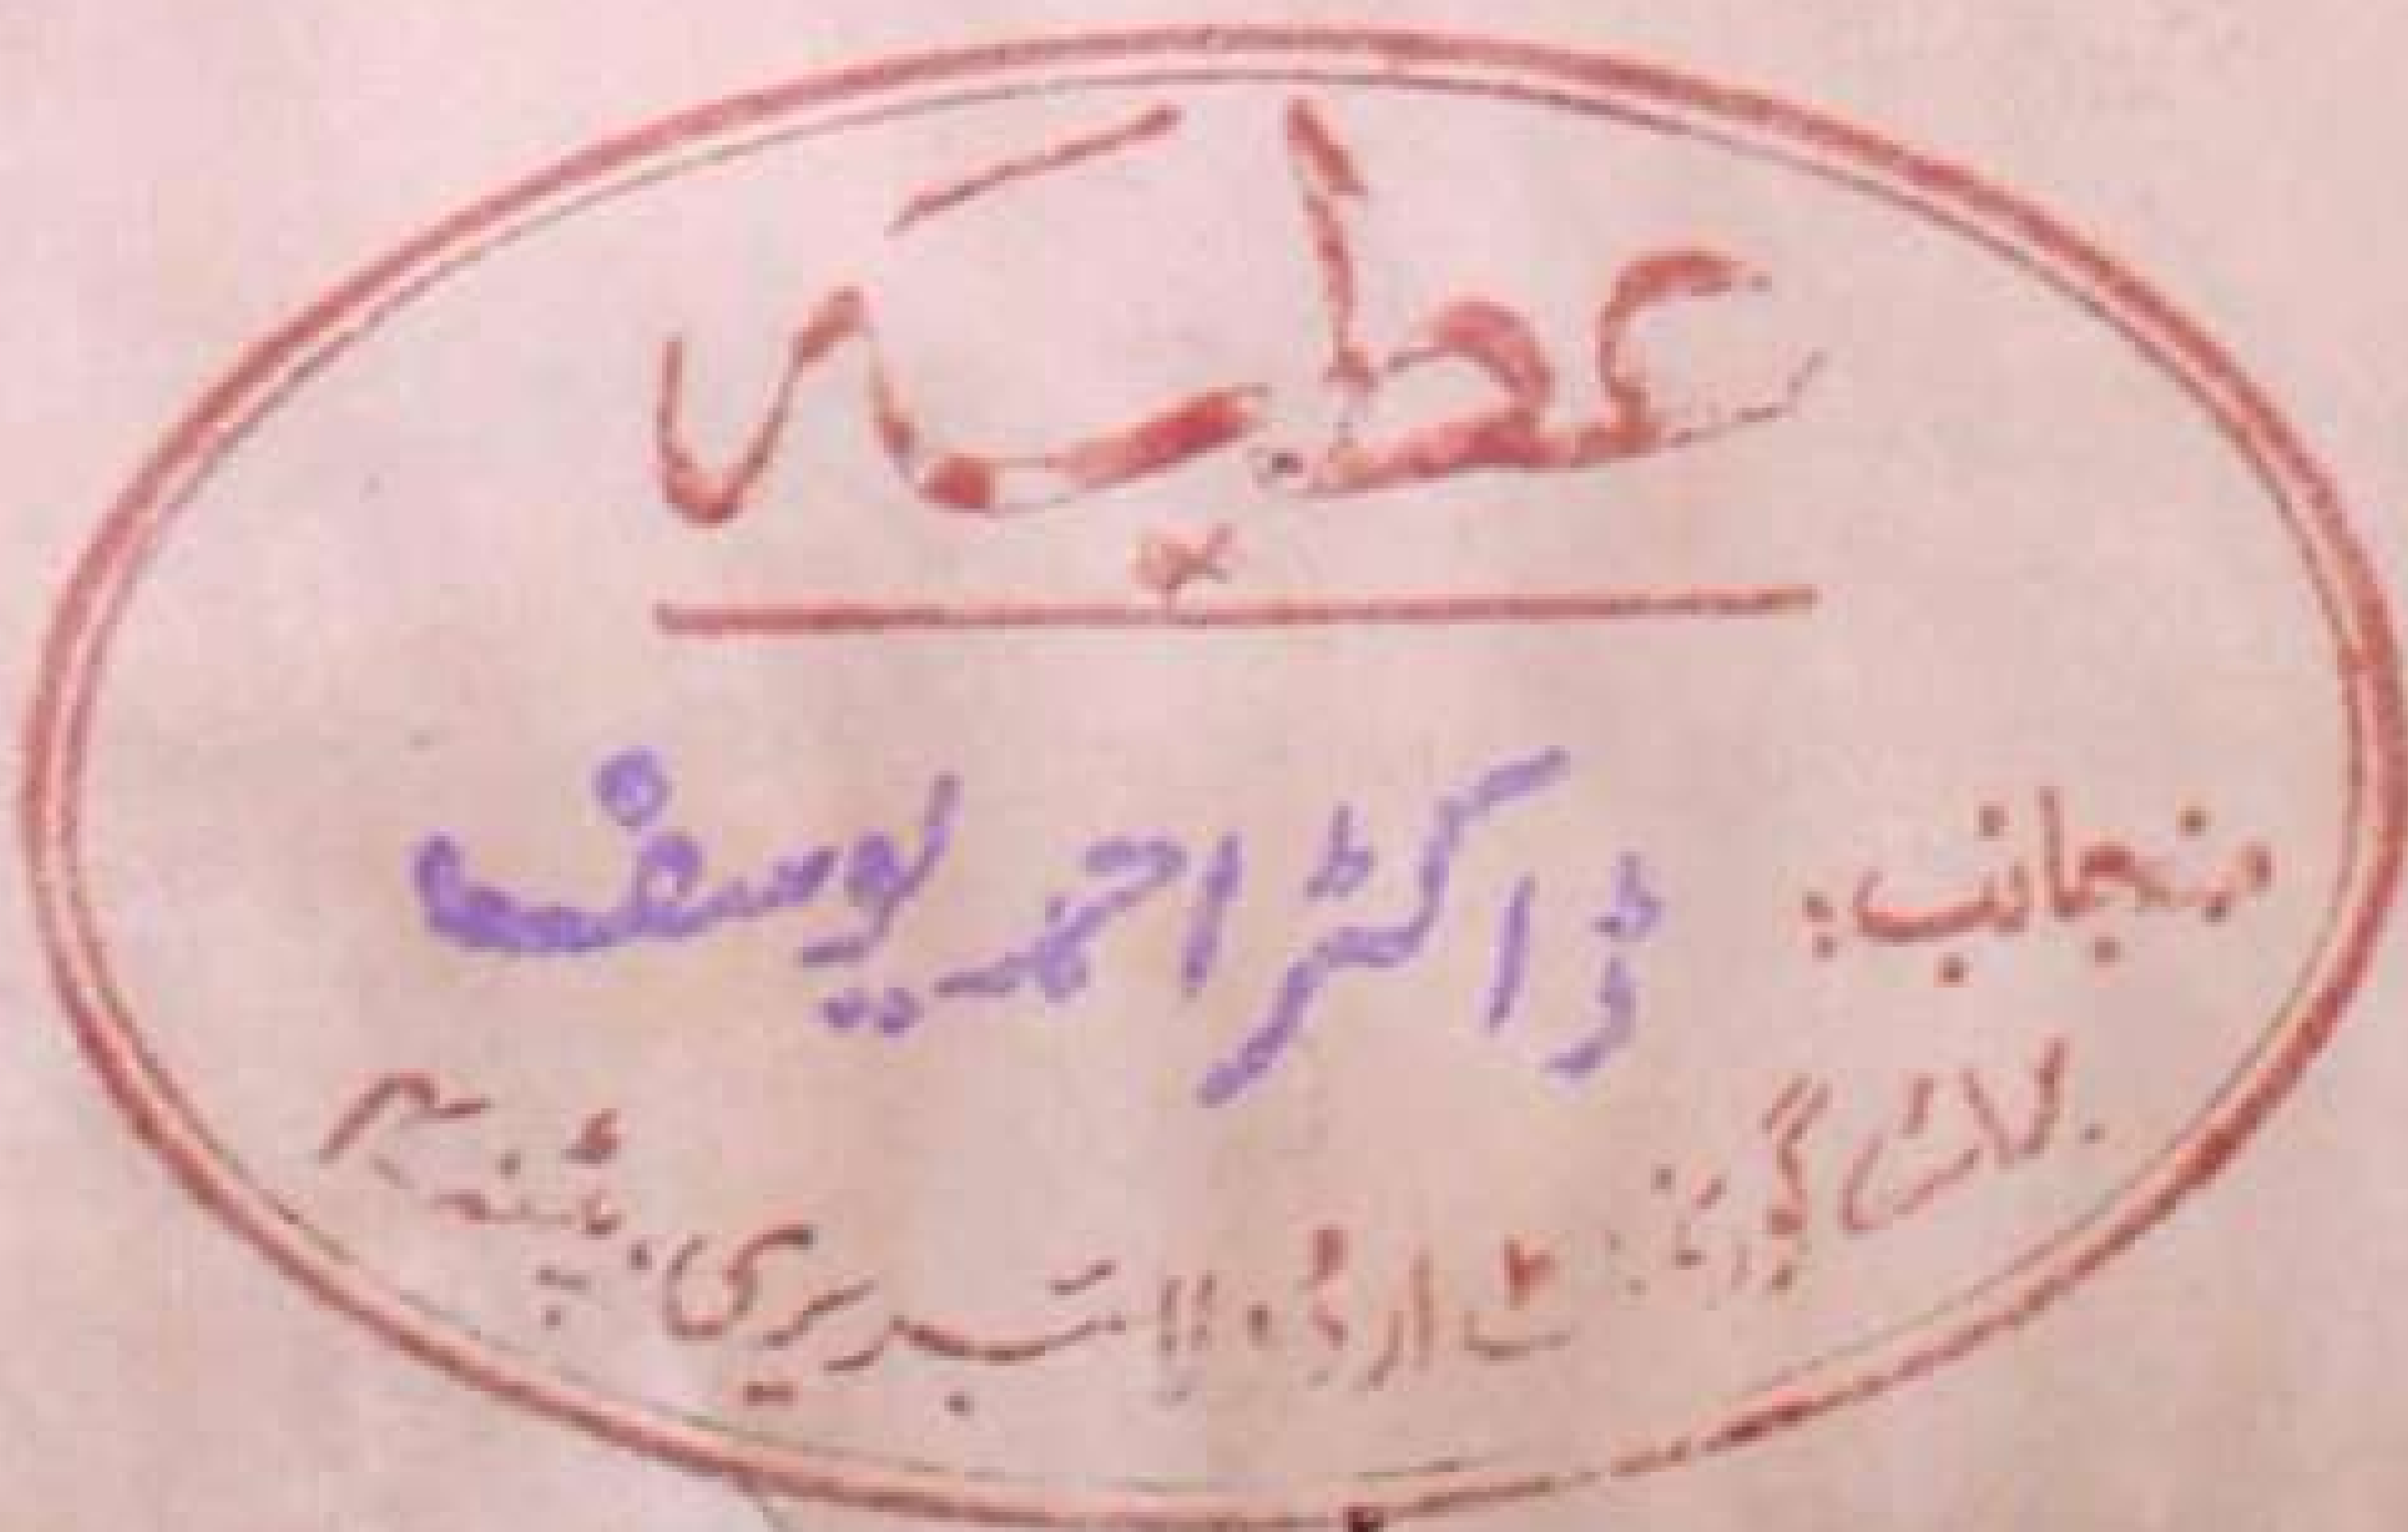 عطیہ
منجانب: ڈاکٹر احمد یوسف
برائے گورنمنٹ اردو لائبریری، پٹنہ ۴